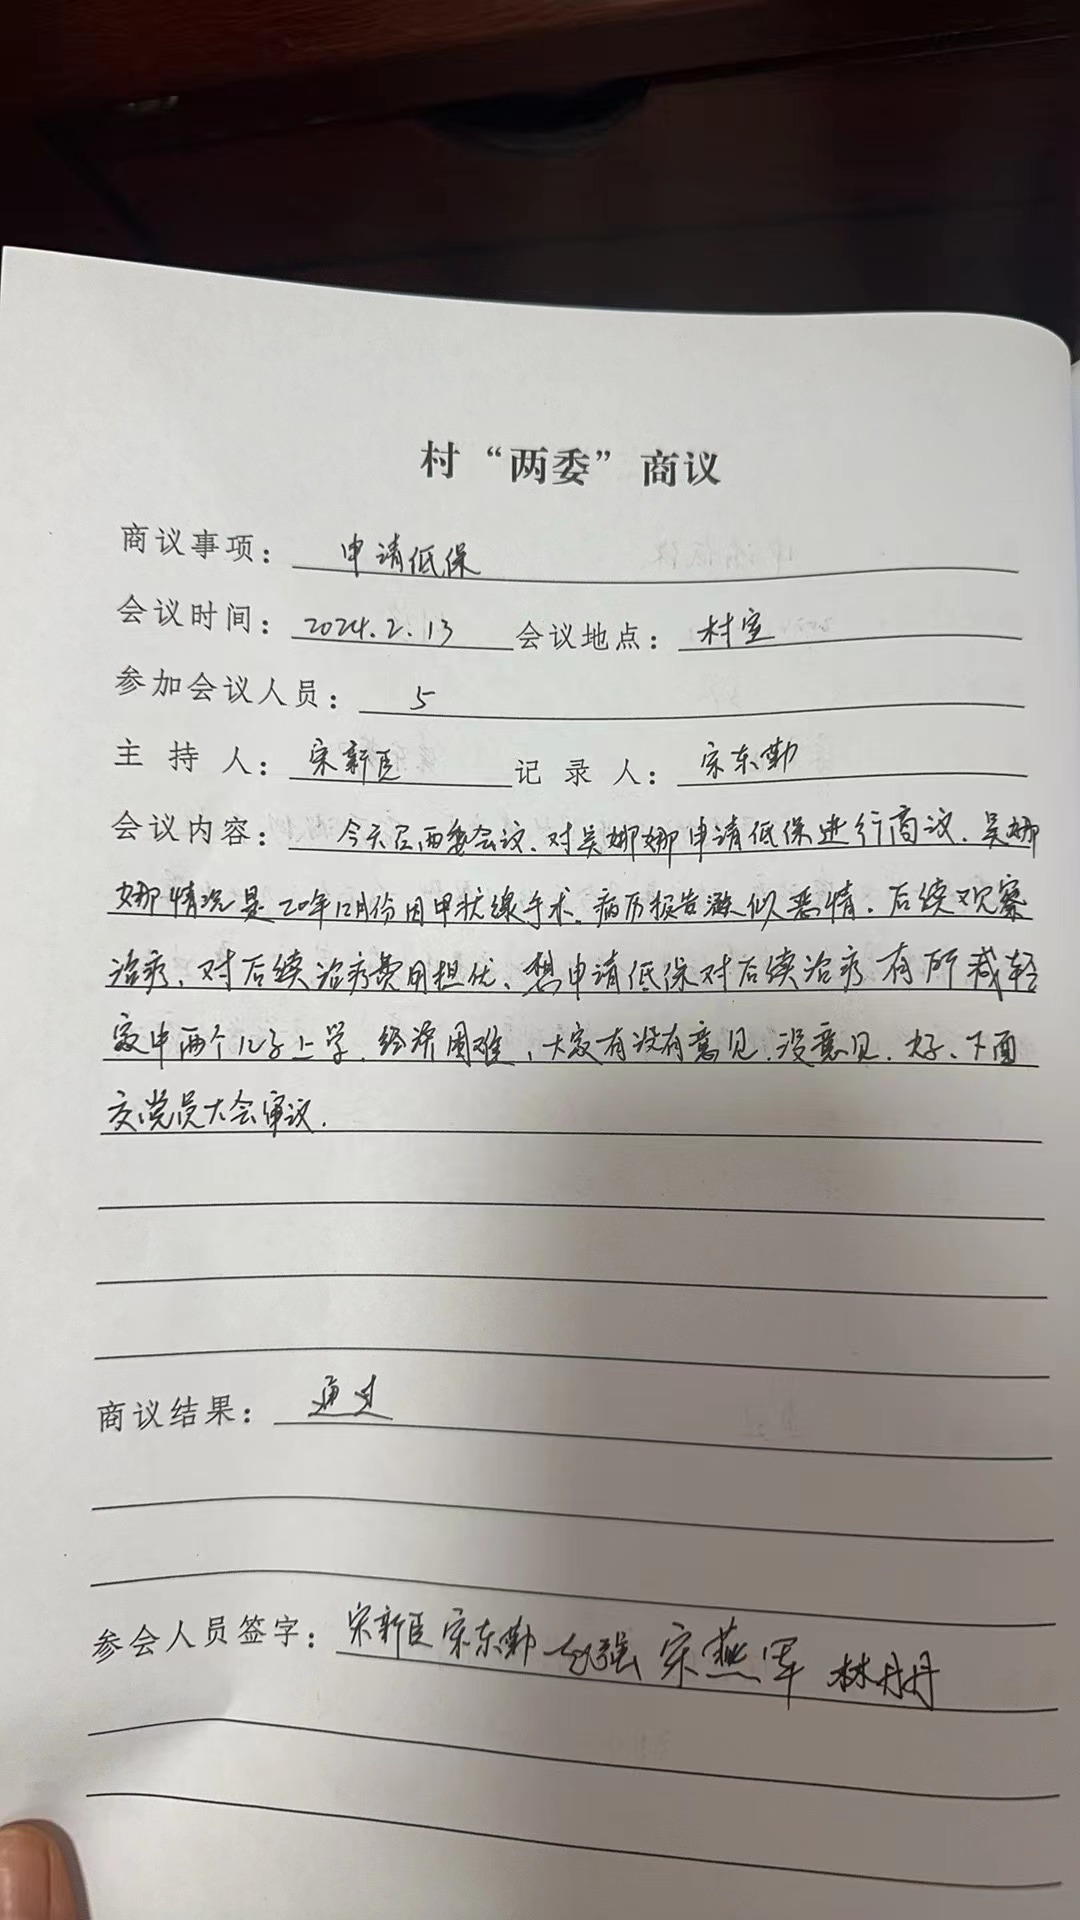 村“两委”商议
商议事项： 申请低保
会议时间： 2024.2.13 会议地点： 村室
参加会议人员： 5
主 持 人： 宋新臣 记 录 人： 宋东勤
会议内容： 今天召两委会议、对吴娜娜申请低保进行商议．吴娜
娜情况是20年12月份因甲状线手术．病历报告 似恶情．后续观察
治疗、对后续治疗费用担忧、想申请低保对后续治疗有所减轻
家中两个儿子上学．经济困难，大家有没有意见．没意见．好、下面
交党员大会审议．
商议结果： 通过
参会人员签字： 宋新臣 宋东勤 赵强 宋燕军 林丹丹